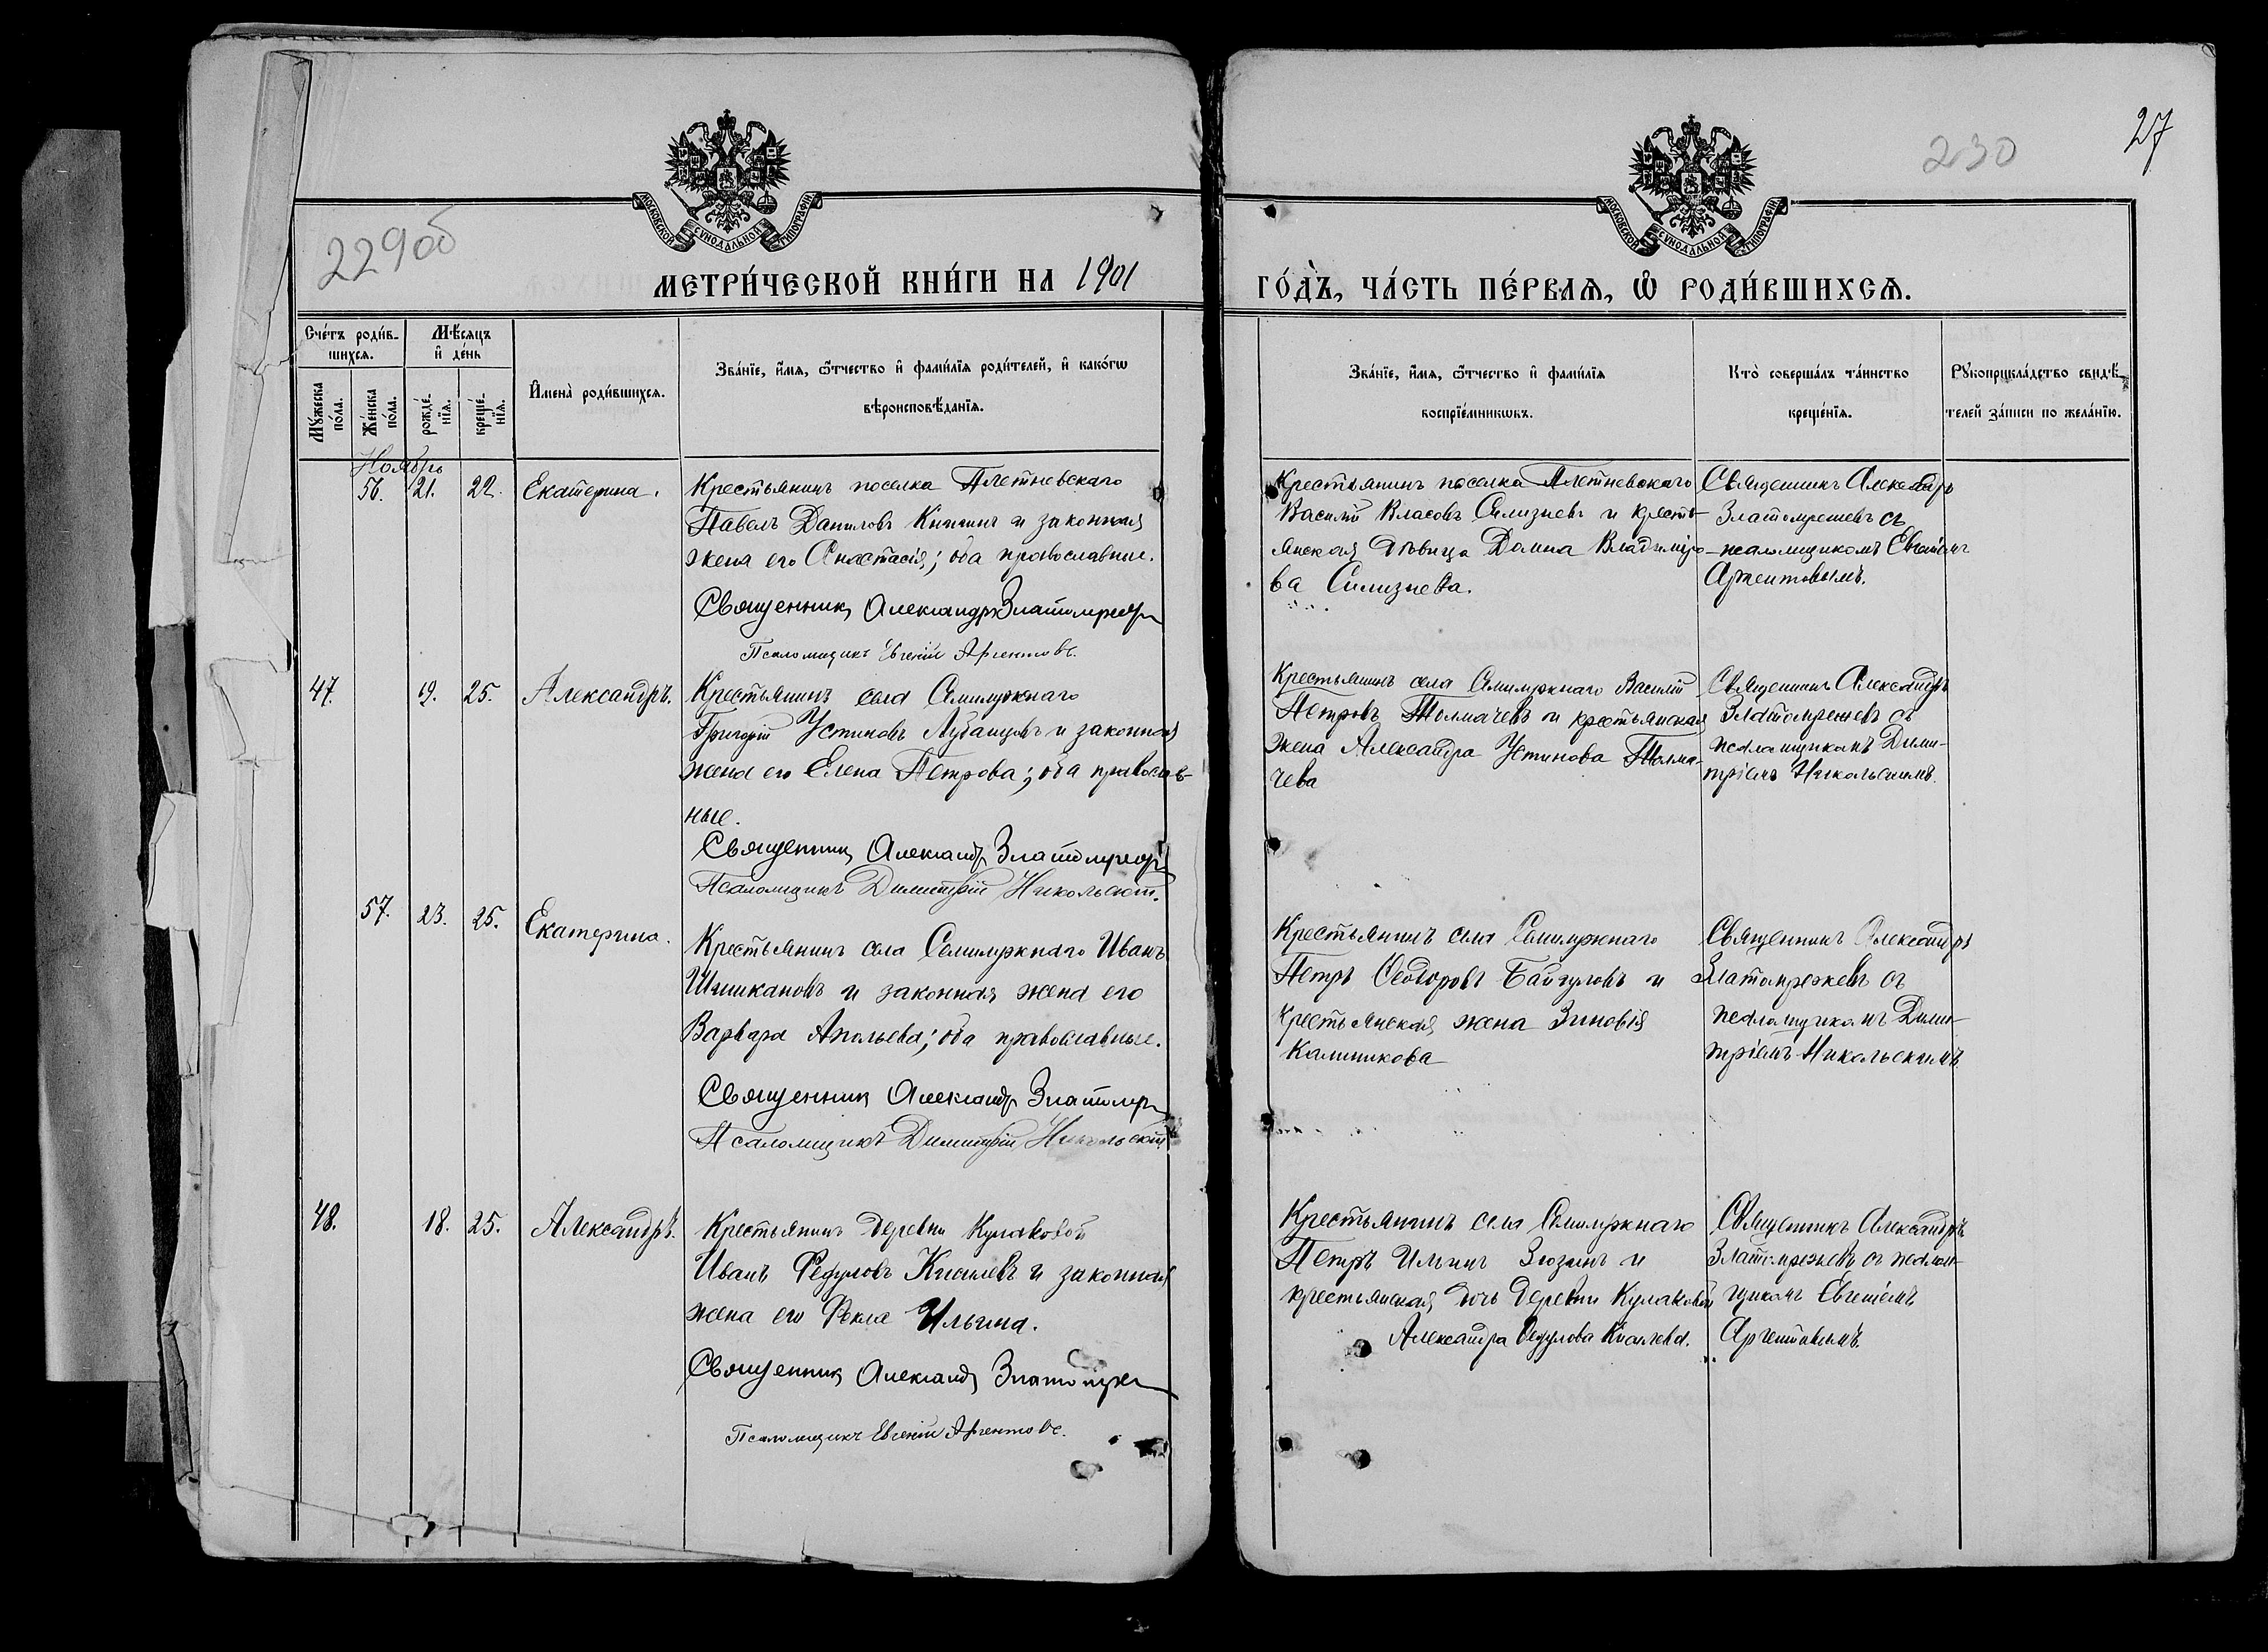 27
230
229об
МОСКОВСКОЙ СѴНОДАЛЬНОЙ ТИПОГРАФІИ
МОСКОВСКОЙ СѴНОДАЛЬНОЙ ТИПОГРАФІИ
МЕТРИ́ЧЕСКОЙ КНИ́ГИ НА 1901
ГО́ДЪ, ЧА́СТЬ ПЕ́РВАѦ, Ѡ҆ РОДИ́ВШИХСѦ.
Сче́тъ роди́в-
шихсѧ.
Мѣ́сѧцъ
и҆ де́нь
Мꙋ́жеска
по́ла.
Же́нска
по́ла.
рожде́-
нїѧ.
креще́-
нїѧ.
И҆мена̀ роди́вшихсѧ.
Зва́нїе, и҆́мѧ, ѻ҆́тчество и҆ фами́лїѧ роди́телей, и҆ како́гѡ
вѣроисповѣ́данїѧ.
Зва́нїе, и҆́мѧ, ѻ҆́тчество и҆ фами́лїѧ
воспрїе́мникѡвъ.
Кто̀ соверша́лъ та́инство
креще́нїѧ.
Рꙋкоприкла́дство свидѣ́-
телей за́писи по жела́нїю.
Ноябрь
56. 21. 22. Екатерина.
Крестьянинъ поселка Плетневскаго
Павелъ Даниловъ и законная
жена его Анастасія; оба православные.
Священникъ Александръ
Псаломщикъ Евгеній Аргентовъ.
Крестьянинъ поселка Плетневскаго
Василій Власовъ Силизневъ и кресть-
янская дѣвица Домна Владиміро-
ва Силизнева.
Священникъ Александръ
съ
псаломщикомъ Евгеніемъ
Аргентовымъ.
47. 19. 25. Александръ.
Крестьянинъ села Семилужнаго
Григорій Устиновъ и законная
жена его Елена Петрова; оба православ-
ные.
Священникъ Александръ
Псаломщикъ Димитрій Никольскій.
Крестьянинъ села Семилужнаго Василій
Петровъ Толмачевъ и крестьянская
жена Александра Устинова Толма-
чева
Священникъ Александръ
съ
псаломщикомъ Дими-
тріемъ Никольскимъ.
57. 23. 25. Екатерина.
Крестьянинъ села Семилужнаго Иванъ
Шишкановъ и законная жена его
Варвара; оба православные.
Священникъ Александръ
Псаломщикъ Димитрій Никольскій
Крестьянинъ села Семилужнаго
Петръ Ѳеодоровъ Байгуловъ и
крестьянская жена Зиновія
Калинникова
Священникъ Александръ
съ
псаломщикомъ Дими-
тріемъ Никольскимъ.
48. 18. 25. Александръ.
Крестьянинъ деревни Кулаковой
Иванъ Федуловъ Киселевъ и законная
жена его Ѳекла Ильина.
Священникъ Александръ
Псаломщикъ Евгеній Аргентовъ.
Крестьянинъ села Семилужнаго
Петръ Ильинъ Зюзинъ и
крестьянская дочь деревни Кулаковой
Александра Федулова Киселева.
Священникъ Александръ
съ псалом-
щикомъ Евгеніемъ
Аргентовымъ.